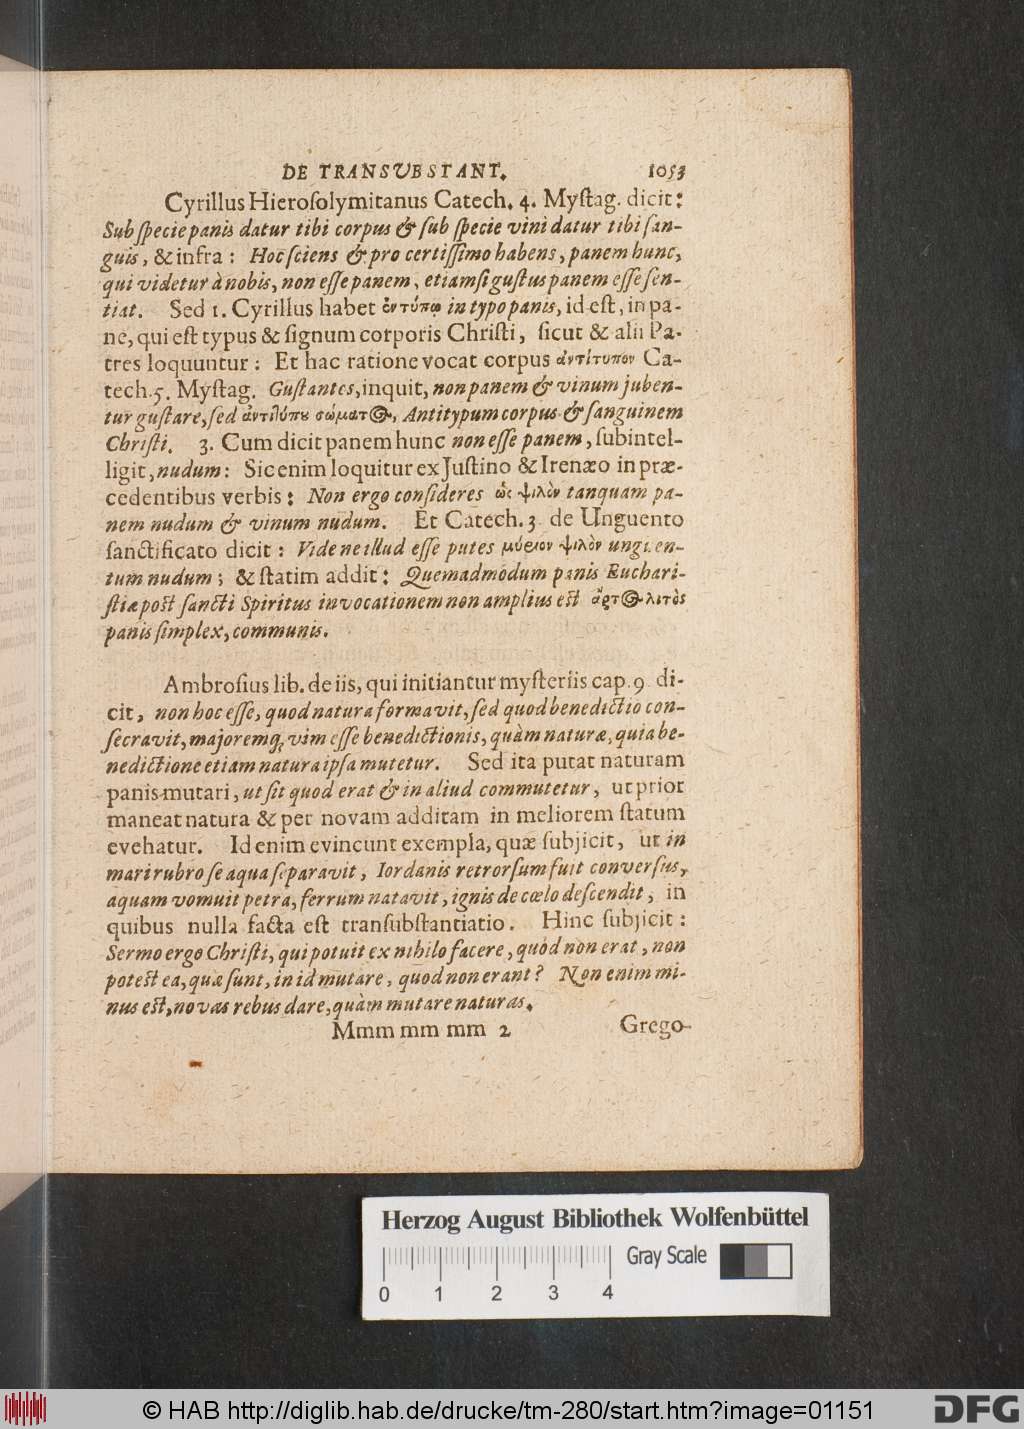 DE TRANSUBSTANT. 1053
Cyrillus Hierosolymitanus Catech. 4. Mystag. dicit:
Sub specie panis datur tibi corpus & sub specie vini datur tibi san-
guis, & infra: Hoc sciens & pro certissimo habens, panem hunc,
qui videtur à nobis, non esse panem, etiamsi gustus panem esse sen-
tiat. Sed 1. Cyrillus habet ἐντύπῳ in typo panis, id est, in pa-
ne, qui est typus & signum corporis Christi, sicut & alii Pa-
tres loquuntur: Et hac ratione vocat corpus ἀντίτυπον Ca-
tech. 5. Mystag. Gustantes, inquit, non panem & vinum juben-
tur gustare, sed ἀντιτύπου σώματος, Antitypum corpus & sanguinem
Christi. 3. Cum dicit panem hunc non esse panem, subintel-
ligit, nudum: Sic enim loquitur ex Justino & Irenæo in præ-
cedentibus verbis: Non ergo consideres ὡς ψιλὸν tanquam pa-
nem nudum & vinum nudum. Et Catech. 3. de Unguento
sanctificato dicit: Vide ne illud esse putes μύριον ψιλὸν unguen-
tum nudum; & statim addit: Quemadmodum panis Euchari-
stiæ post sancti Spiritus invocationem non amplius est ἄρτος λιτὸς
panis simplex, communis.
Ambrosius lib. de iis, qui initiantur mysteriis cap. 9. di-
cit, non hoc esse, quod natura formavit, sed quod benedictio con-
secravit, majoremq; vim esse benedictionis, quàm naturæ, quia be-
nedictione etiam natura ipsa mutetur. Sed ita putat naturam
panis mutari, ut sit quod erat & in aliud commutetur, ut prior
maneat natura & per novam additam in meliorem statum
evehatur. Id enim evincunt exempla, quæ subjicit, ut in
mari rubro se aqua separavit, Iordanis retrorsum fuit conversus,
aquam vomuit petra, ferrum natavit, ignis de cœlo descendit, in
quibus nulla facta est transubstantiatio. Hinc subjicit:
Sermo ergo Christi, qui potuit ex nihilo facere, quod non erat, non
potest ea, quæ sunt, in id mutare, quod non erant? Non enim mi-
nus est, novas rebus dare, quàm mutare naturas.
Mmm mm mm 2 Grego-
Herzog August Bibliothek Wolfenbüttel
Gray Scale
0 1 2 3 4
© HAB http://diglib.hab.de/drucke/tm-280/start.htm?image=01151
DFG